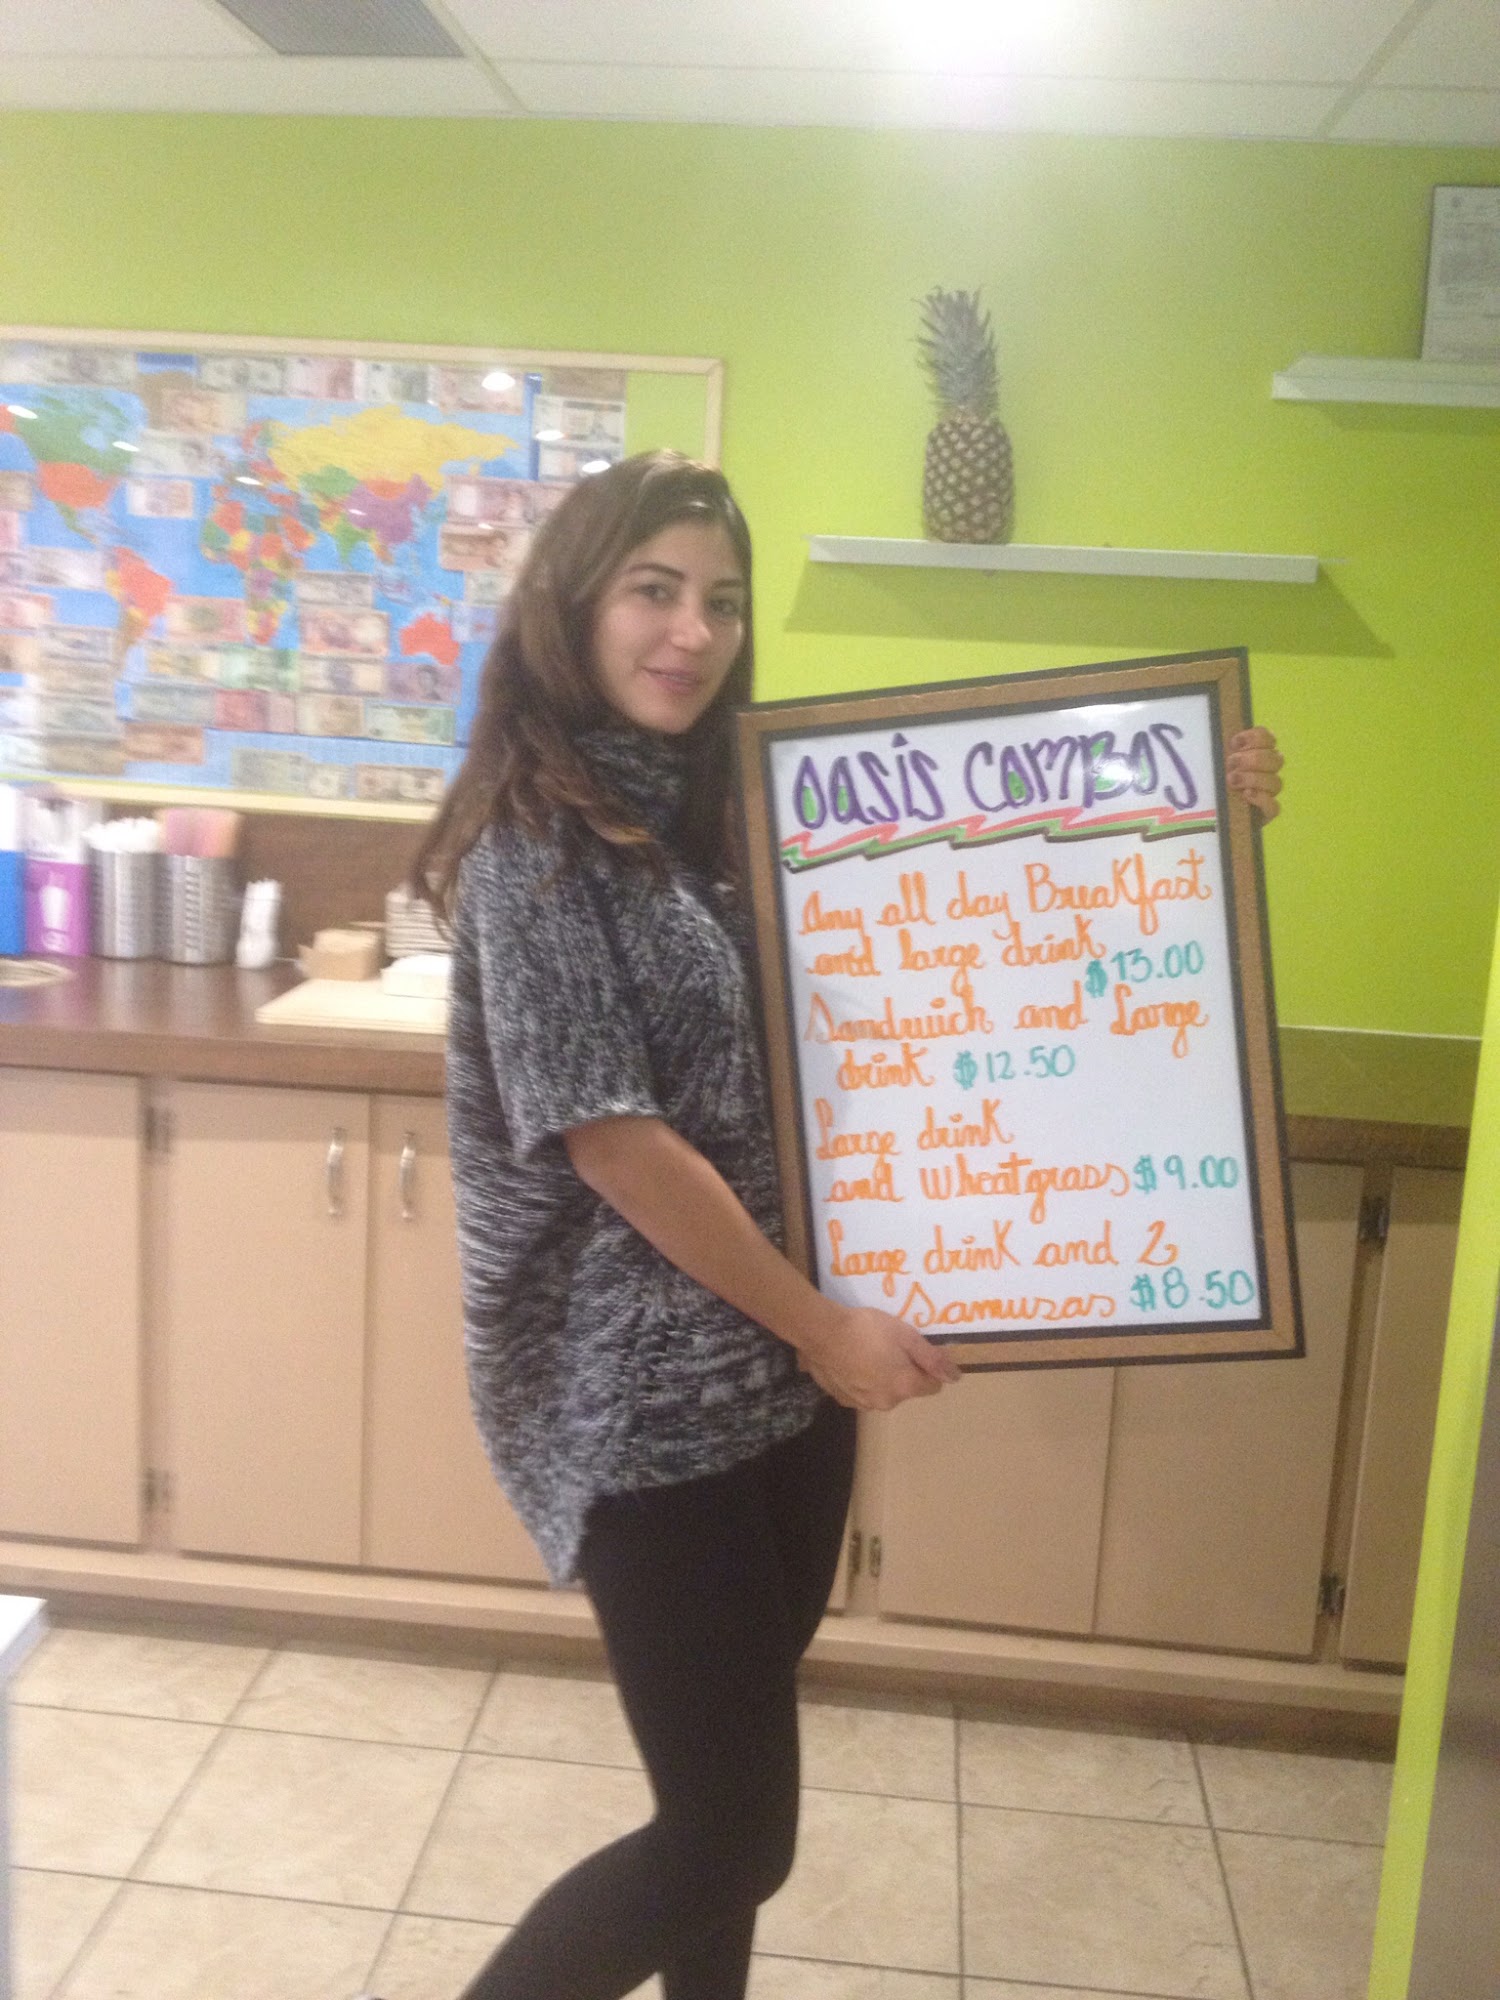 OASIS COMBOS
Any all day Breakfast
and large drink
$13.00
Sandwich and Large
drink $12.50
Large drink
and Wheatgrass $9.00
Large drink and 2
Samusas $8.50